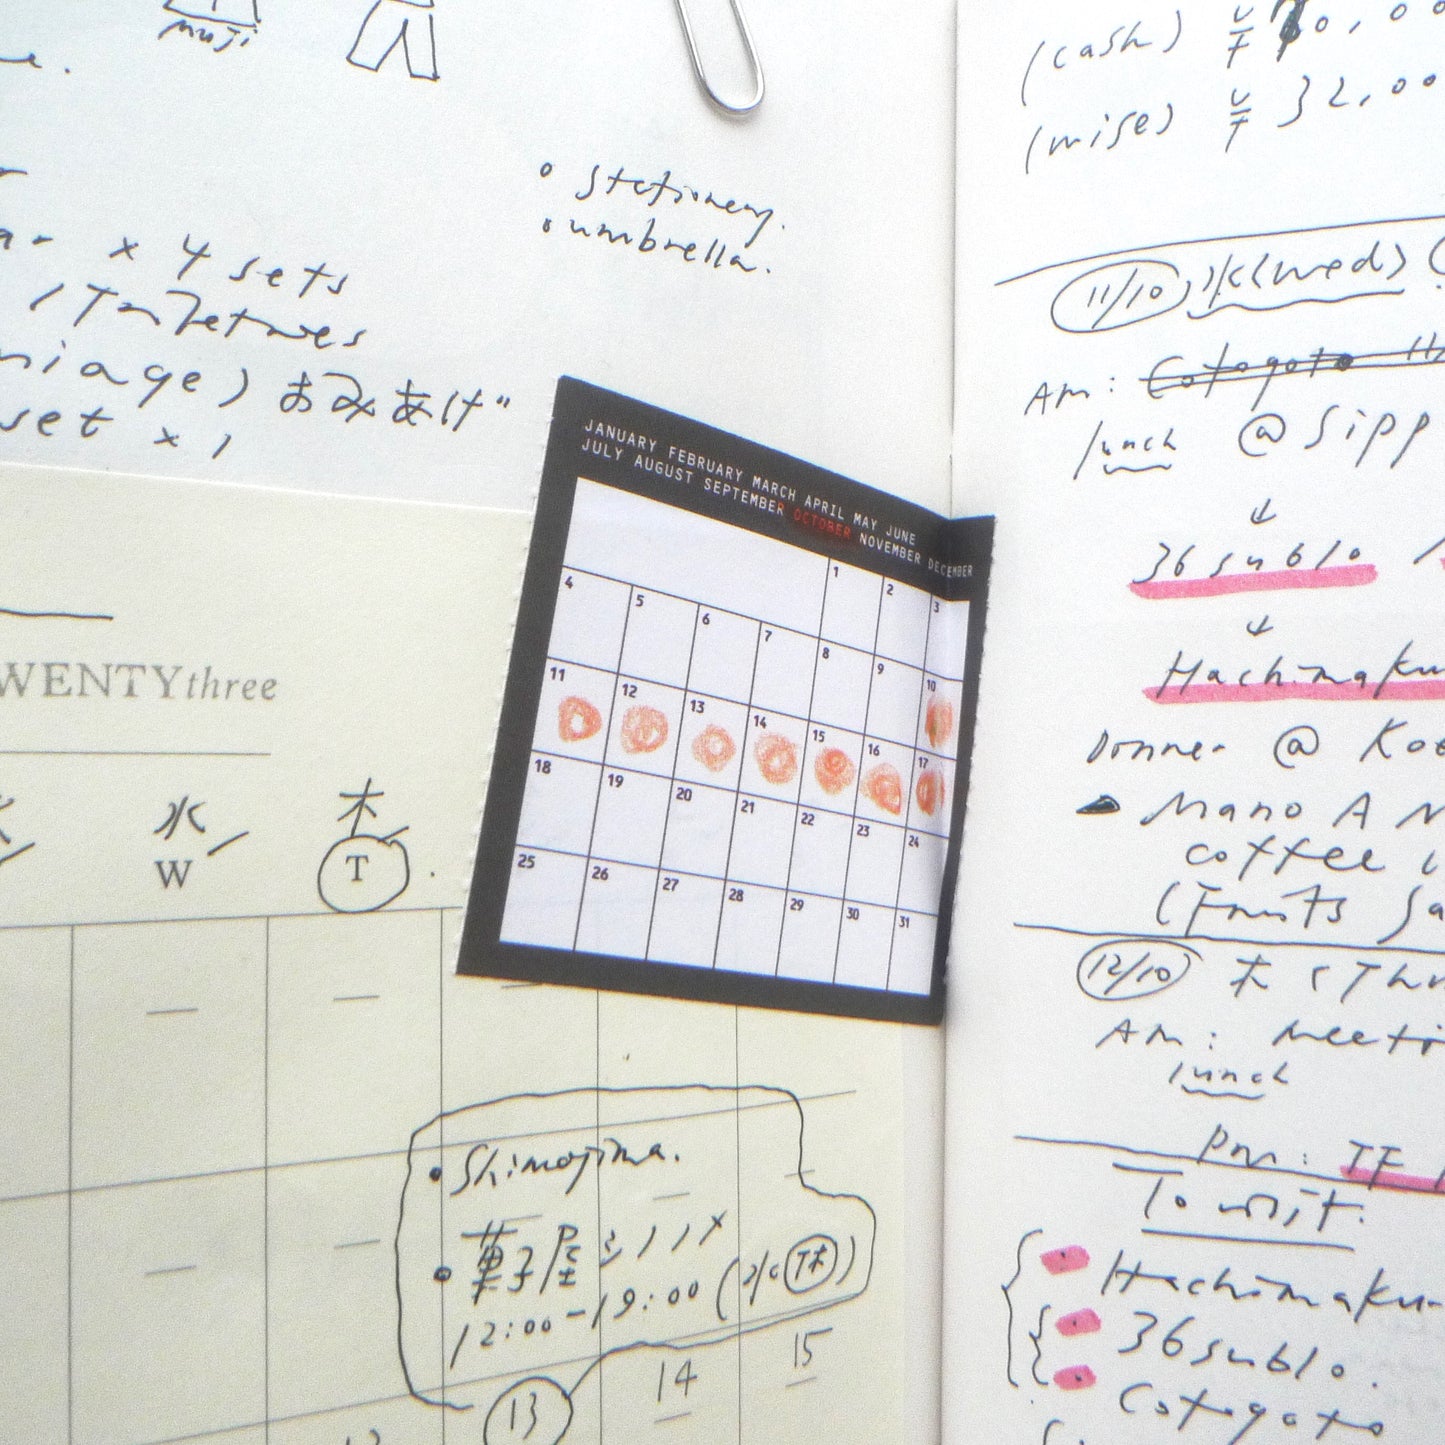 muji
e.
• stationery.
• umbrella.
x 4 sets
niage) おみあげ"
set x 1
WENTYthree
水
木
W
T
JANUARY FEBRUARY MARCH APRIL MAY JUNE
JULY AUGUST SEPTEMBER OCTOBER NOVEMBER DECEMBER
1 2 3
4 5 6 7 8 9 10
11 12 13 14 15 16 17
18 19 20 21 22 23 24
25 26 27 28 29 30 31
• Shimojima.
• 菓子屋シノノメ
12:00-19:00 (水休)
13
14
15
(cash) ¥
(mise) ¥ 32,00
11/10 水(wed)
AM: Cotogoto 11
lunch @ Sipp
↓
36 sublo
↓
Hachimaku
Dinner @ Koe
Mano A M
coffee
(Fruits Sa
12/10 木 (Thu
AM: Meeti
lunch
PM: TF
To visit.
• Hachimaku
• 36 sublo.
• Cotogoto